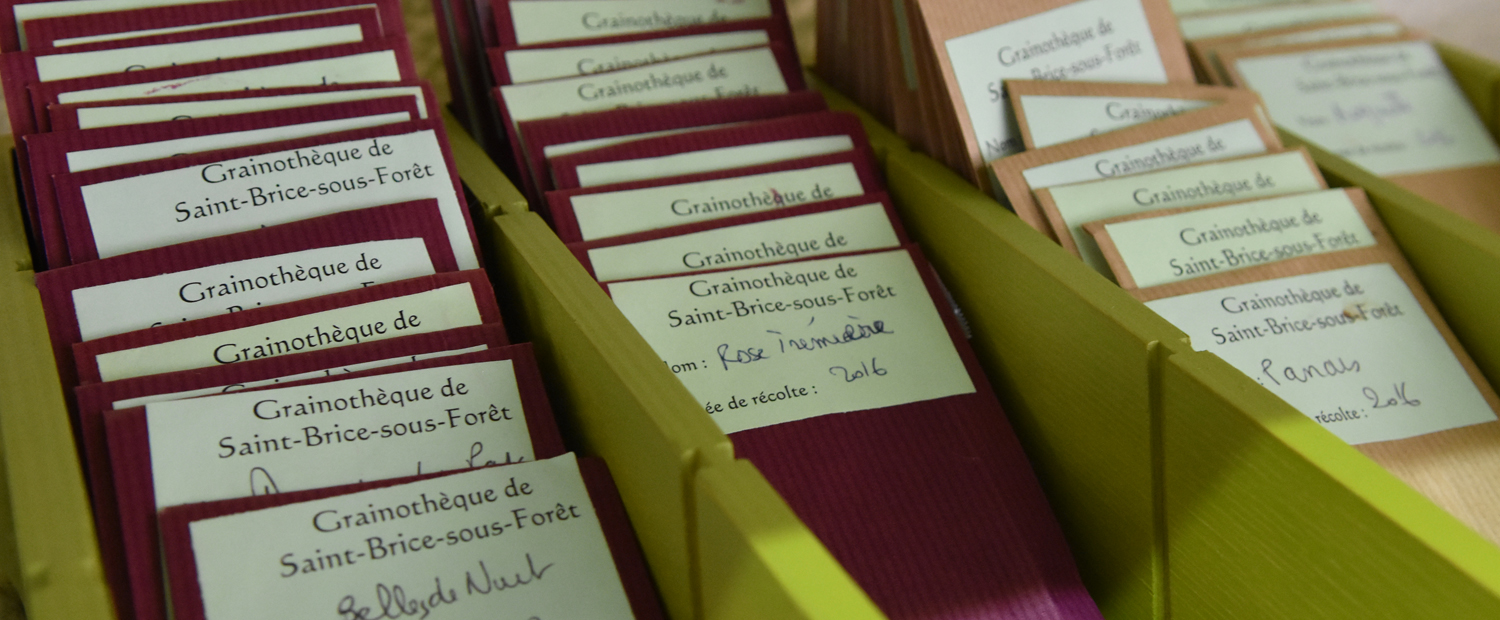 Grainothèque de
Saint-Brice-sous-Forêt
Grainothèque de
Grainothèque de
Grainothèque de
Saint-Brice-sous-Forêt
Grainothèque de
Saint-Brice-sous-Forêt
Belles de Nuit
Grainothèque de
Grainothèque de
Grainothèque de
Grainothèque de
Grainothèque de
Grainothèque de
Saint-Brice-sous-Forêt
Nom : Rose Trémière
ée de récolte : 2016
Grainothèque de
Saint-Brice-sous-Forêt
Nom
Grainothèque
Grainothèque de
Grainothèque de
Grainothèque de
Saint-Brice-sous-Forêt
Grainothèque de
Saint-Brice-sous-Forêt
Panais
récolte : 2016